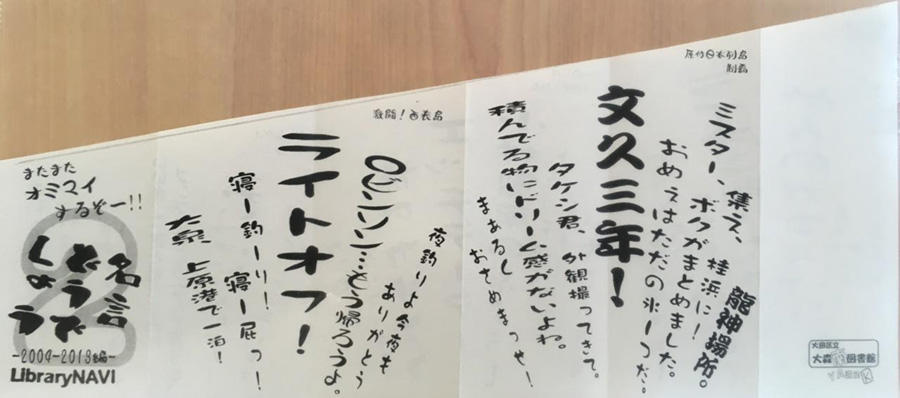 原付日本列島
制覇
龍神場所。
集え、桂浜に!
ミスター、ボクがまとめました。
おめぇはただの氷一つだ。
文久三年!
タケシ君、外観撮ってきて。
積んでる物にドリーム感がないよね。
まぁるくおさめまっせ!
激闘!西表島
夜釣りよ今夜も
ありがとう
ロビンソン…もう帰ろうよ。
ライトオフ!
寝ー釣ーり!寝ー屁っ!
大泉、上原港で一泊!
またまた
オミマイ
するぞー!!
名言
どうで
しょう
2
-2004-2013
LibraryNAVI
大田区立
大森 図書館